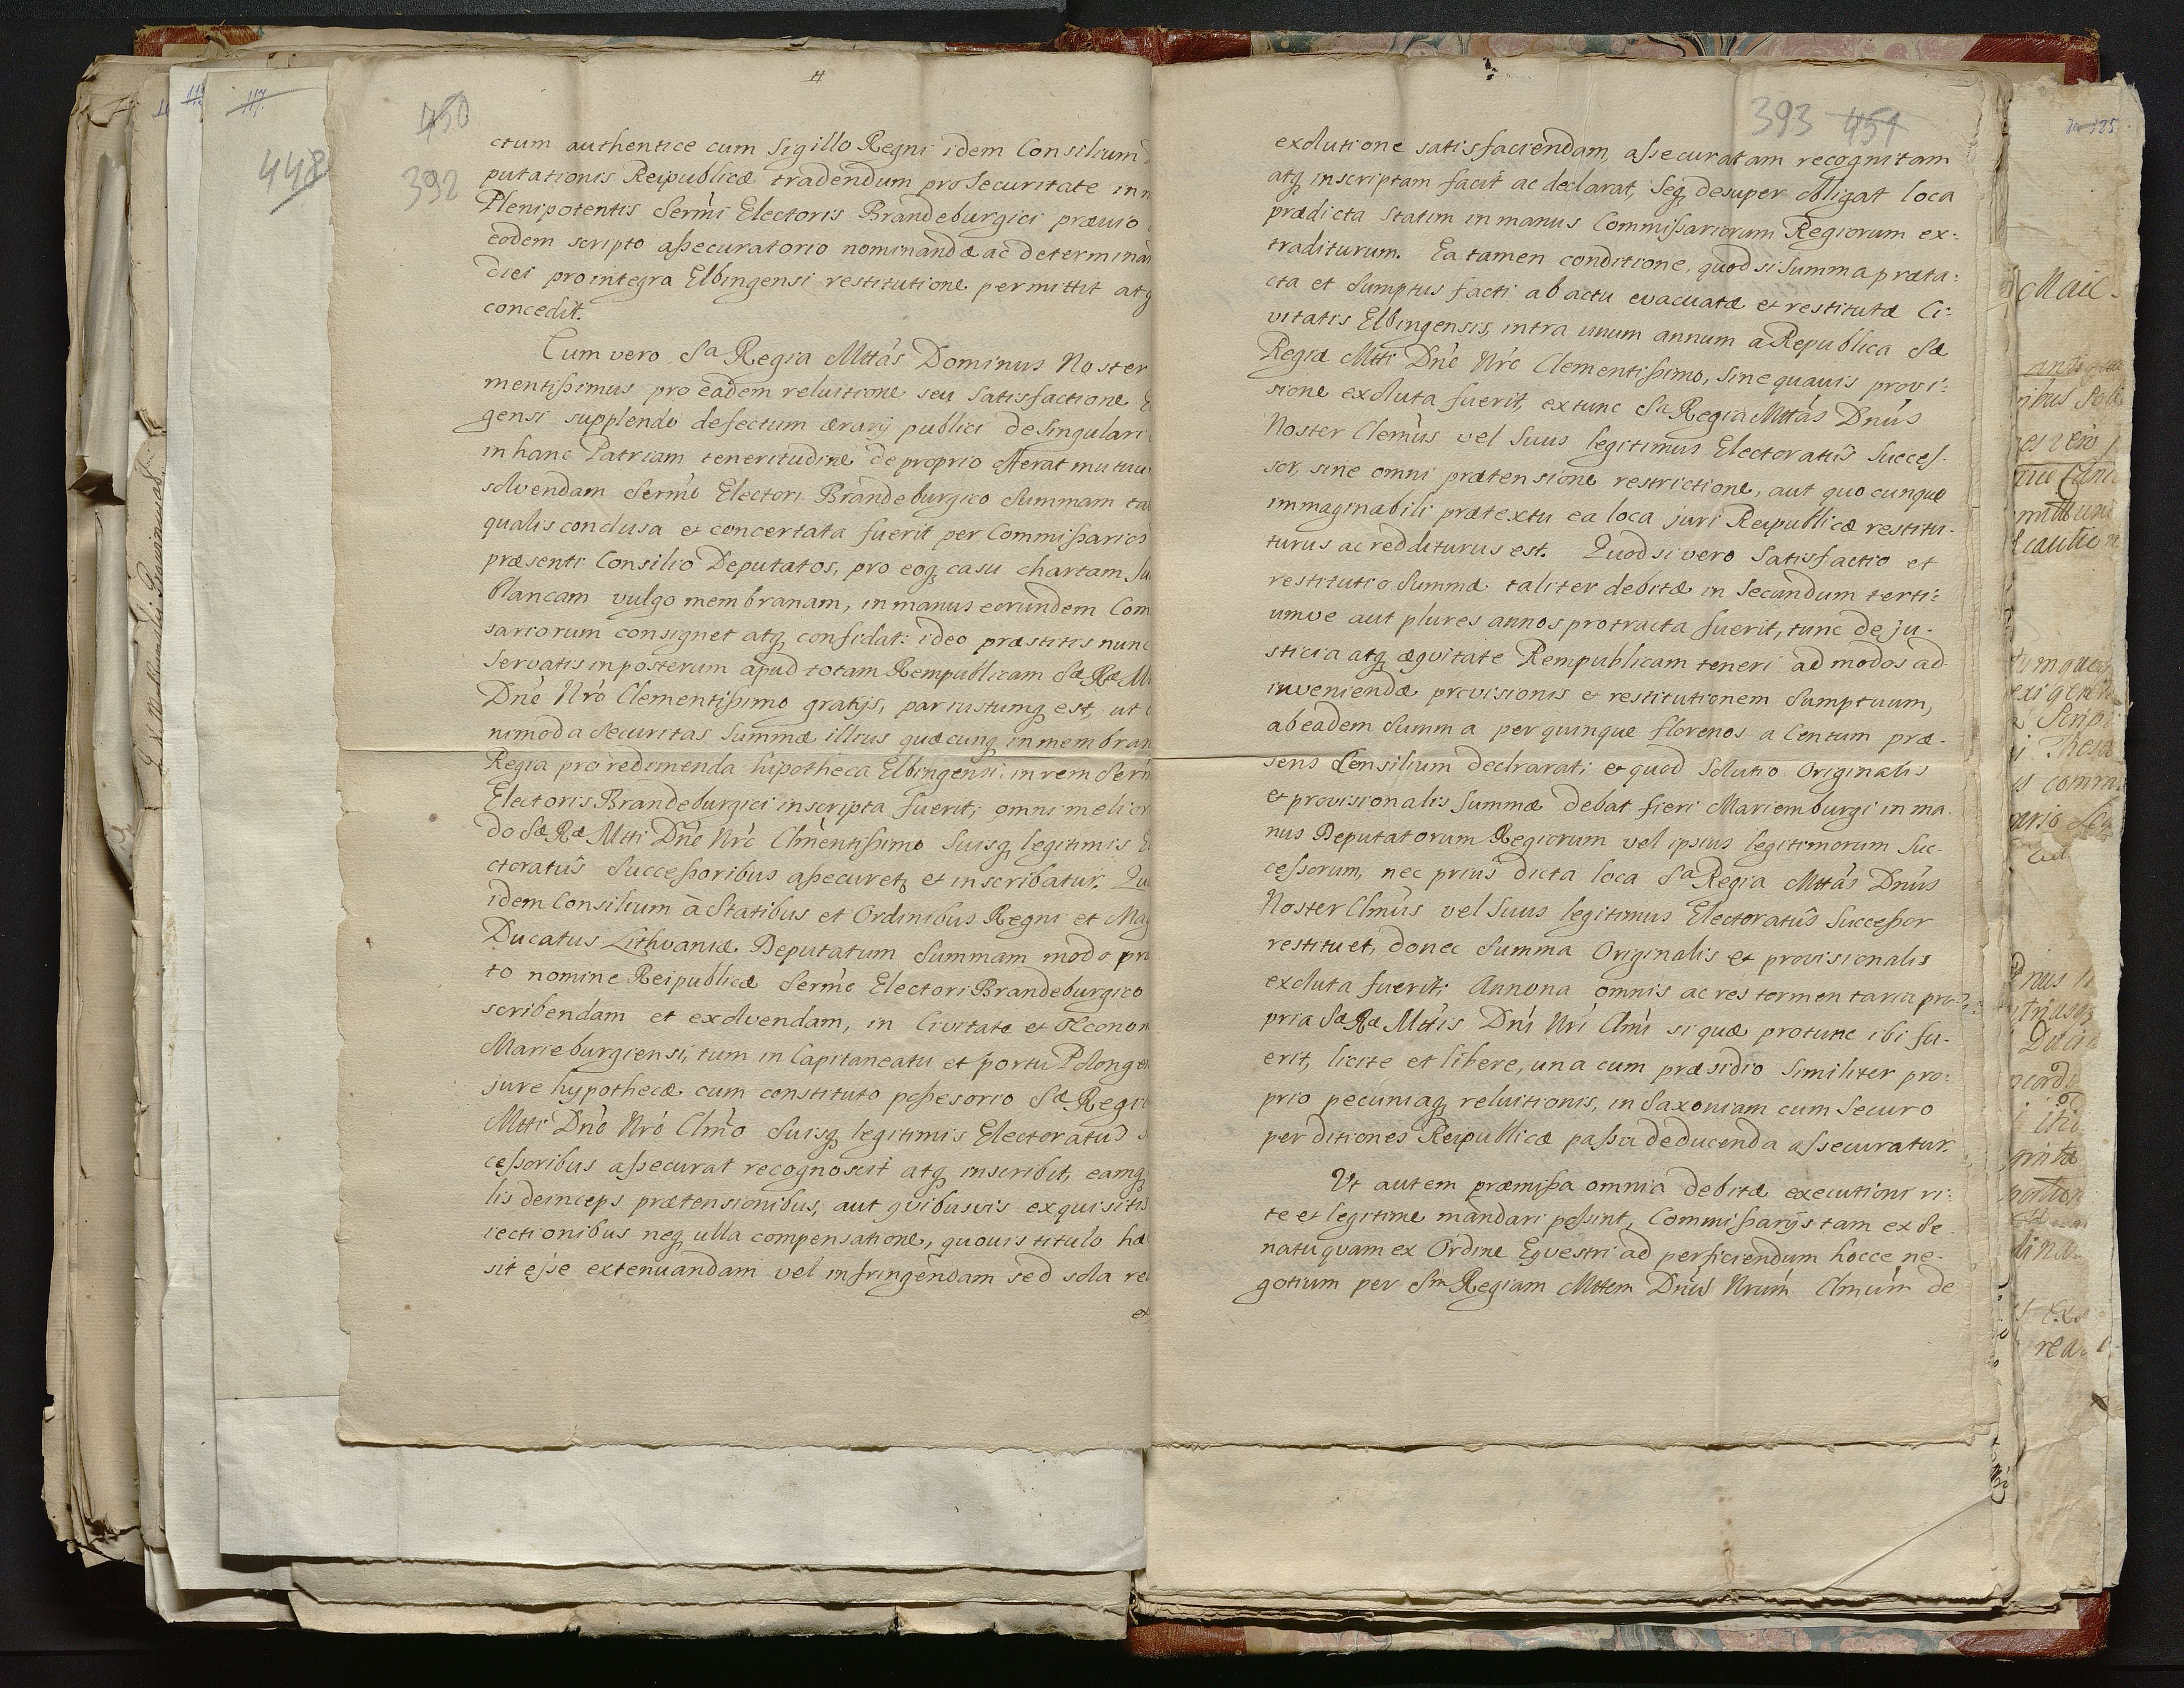 450
392
ctum authentice cum Sigillo Regni idem Consilium
putationis Reipublicæ tradendum pro Securitate in
Plenipotentis Sermi Electoris Brandeburgici prævio
eodem scripto assecuratorio nominandæ ac determinan
diei pro integra Elbingensi restitutione permittit atq
concedit.
Cum vero Sa Regia Mttas Dominus Noster
mentissimus pro eadem reluitione seu satisfactione
gensi supplendo defectum ærarij publici de Singulari
in hanc Patriam teneritudine de proprio offerat mutuu
solvendam Sermo Electori Brandeburgico Summam ta
qualis conclusa et concertata fuerit per Commissarios
præsenti Consilio Deputatos, pro eoq casu chartam Su
blancam vulgo membranam, in manus eorundem Com
sariorum consignet atq confidat: ideo præstitis nunc
servatis in posterum apud totam Rempublicam Sæ Ræ M
Dno Nro Clementissimo gratijs, par iustumq est, ut
nimoda Securitas Summæ illius quæcunq in membran
Regia pro redimenda hipotheca Elbingensi in rem Serm
Electoris Brandeburgici inscripta fuerit, omni melior
do Sæ Ræ Mtti Dno Nro Clmentissimo Suisq legitimis
ctoratus Successoribus assecuret et inscribatur. Qu
idem Consilium à Statibus et Ordinibus Regni et Mag
Ducatus Lithvaniæ Deputatum Summam modo pr
to nomine Reipublicæ Sermo Electori Brandeburgico
scribendam et exolvendam, in Civitate et Œconom
Marieburgensi, tum in Capitaneatu et portu Polong
jure hypothecæ cum constituto possesorio Sæ Regiæ
Mtti Dno Nro Clmo Suisq legitimis Electoratus
cessoribus assecurat recognoscit atq inscribit, eamq
lis deinceps prætensionibus, aut quibusvis exquisitis
iectionibus neq ulla compensatione, quovis titulo hæ
sit esse extenuandam vel infringendam sed sola re
ex
393 451
exolutione satisfaciendam, assecuratam recognitam
atq inscriptam facit ac declarat, Seq desuper obligat loca
prædicta statim in manus Commissariorum Regiorum ex:
traditurum. Ea tamen conditione, quod si Summa præta:
cta et Sumptus facti ab actu evacuatæ et restitutæ Ci:
vitatis Elbingensis, intra unum annum a Republica Sæ
Regiæ Mtti Dno Nro Clementissimo, sine quavis provi:
sione exoluta fuerit, extunc Sa Regia Mttas Dnus
Noster Clemus vel Suus legitimus Electoratus Succes-
sor, sine omni prætensione restrictione, aut quocunque
immaginabili prætextu ea loca juri Reipublicæ restitu-
turus ac redditurus est. Quod si vero Satisfactio et
restitutio Summæ taliter debitæ in Secundum terti:
umve aut plures annos protracta fuerit, tunc de ju-
sticia atq æqvitate Rempublicam teneri ad modos ad
inveniendæ provisionis et restitutionem Sumptuum,
ab eadem Summa per quinque florenos a Centum præ-
sens Consilium declrarat; et quod Solutio Originalis
et provisionalis Summæ debat fieri Mariemburgi in ma-
nus Deputatorum Regiorum vel ipsius legitimorum Suc-
cessorum, nec prius dicta loca Sa Regia Mttas Dnus
Noster Clmus vel Suus legitimus Electoratus Successor
restituet, donec Summa Originalis et provisionalis
exoluta fuerit. Annona omnis ac res tormentaria pro-
pria Sæ Ræ Mttis Dni Nri Clmi si quæ protunc ibi fu-
erit, licite et libere, una cum præsidio similiter pro:
prio pecuniaq reluitionis, in Saxoniam cum Securo
per ditiones Reipublicæ passu deducenda assecuratur.
Ut autem præmissa omnia debitæ executioni ri:
te et legitime mandari possint, Commissarijs tam ex Se
natu qvam ex Ordine Eqvestri ad perficiendum hocce ne-
gotium per Sm Regiam Mttem Dnus Nrum Clmum de
448
117